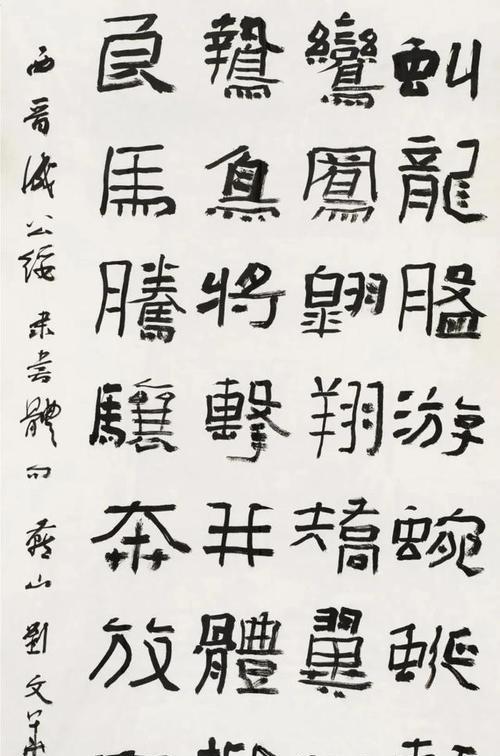 虯龍盤游蜿蜒
鸞鳳翱翔矯翼
鷙鳥將擊并體
良馬騰驤奔放
西晉成公綏隸書體句燕山劉文華